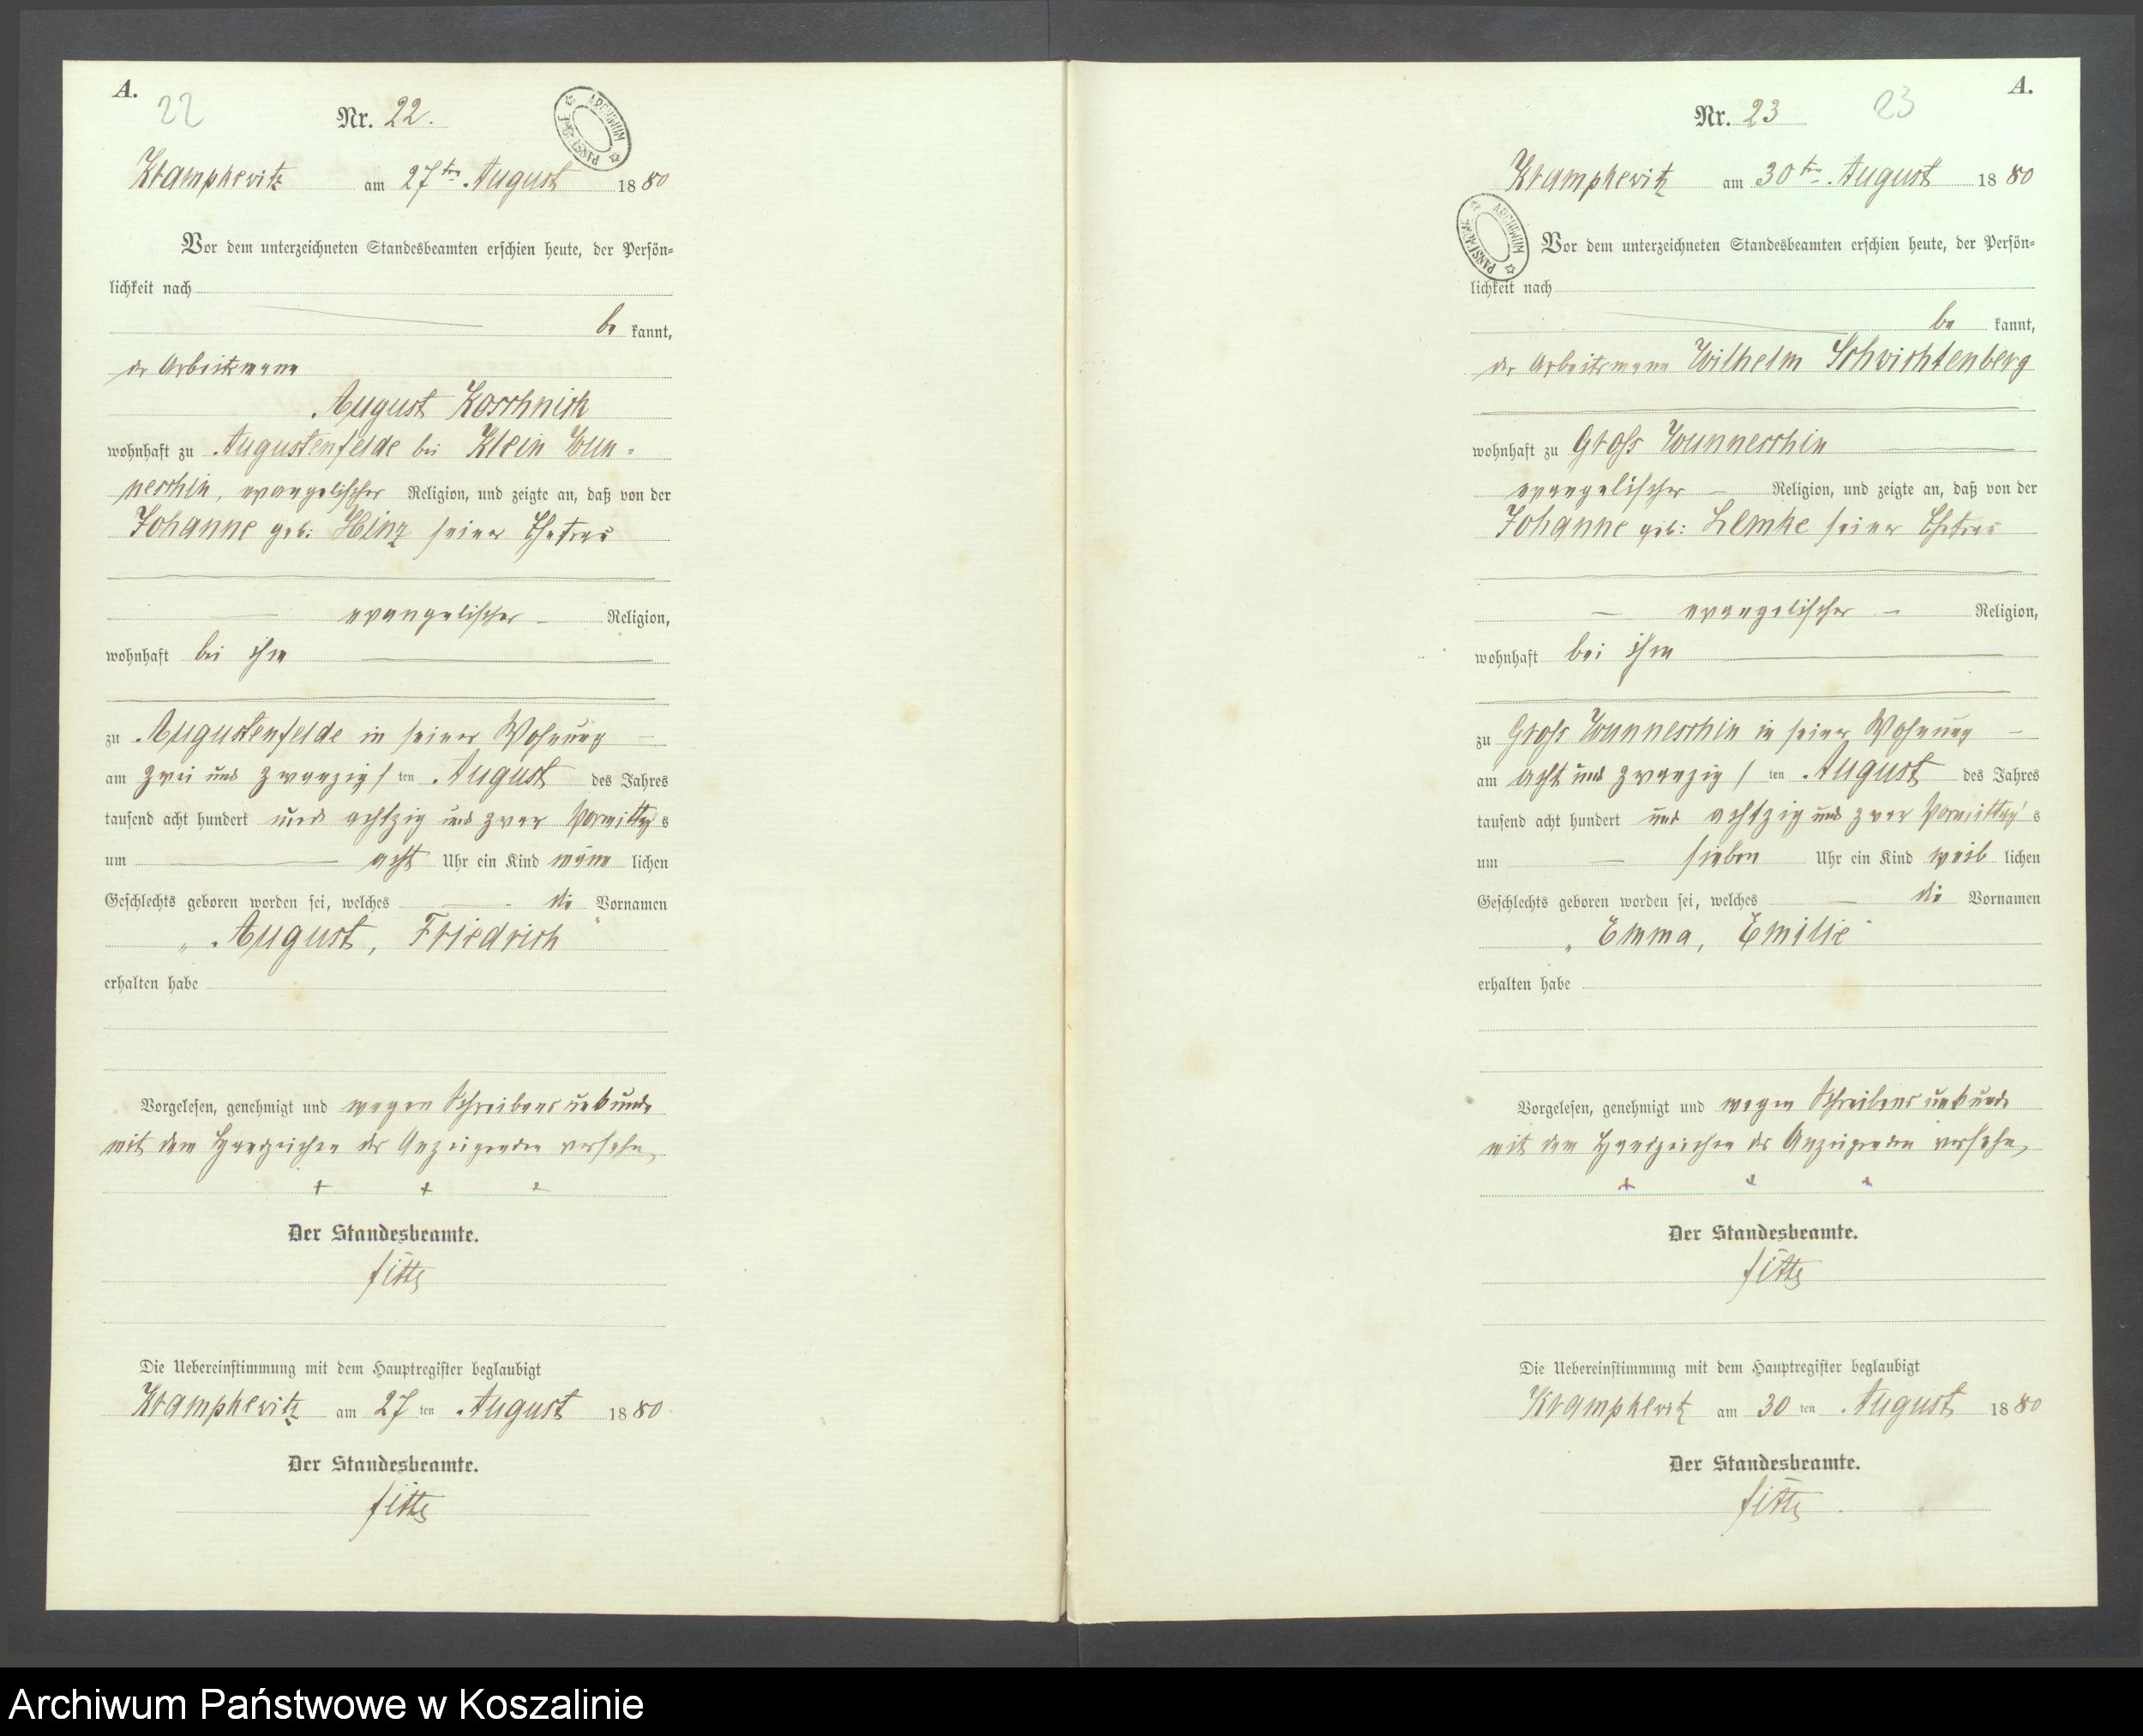 A.
22
Nr. 22.
ARCHIWUM PAŃSTWOWE
Kramphewitz am 27ten August 1880
Vor dem unterzeichneten Standesbeamten erschien heute, der Persön=
lichkeit nach
be kannt,
der Arbeitsmann
August Koschnick
wohnhaft zu Augustenfelde bei Klein Wun=
neschin, evangelischer Religion, und zeigte an, daß von der
Johanne geb: Hinz seiner Ehefrau
evangelischer Religion,
wohnhaft bei ihm
zu Augustenfelde in seiner Wohnung
am zwei und zwanzig/ten August des Jahres
tausend acht hundert und achtzig und zwar Vormittags
um acht Uhr ein Kind männlichen
Geschlechts geboren worden sei, welches die Vornamen
„August, Friedrich“
erhalten habe
Vorgelesen, genehmigt und wegen Schreibensunkunde
mit dem Handzeichen des Anzeigenden versehn,
+ + +
Der Standesbeamte.
Die Uebereinstimmung mit dem Hauptregister beglaubigt
Kramphewitz am 27ten August 1880
Der Standesbeamte.
A.
Nr. 23
23
Kramphewitz am 30ten August 1880
ARCHIWUM PAŃSTWOWE
Vor dem unterzeichneten Standesbeamten erschien heute, der Persön=
lichkeit nach
be kannt,
der Arbeitsmann Wilhelm Schwichtenberg
wohnhaft zu Groß Wunneschin
evangelischer Religion, und zeigte an, daß von der
Johanne geb: Lemke seiner Ehefrau
evangelischer Religion,
wohnhaft bei ihm
zu Groß Wunneschin in seiner Wohnung
am acht und zwanzig/ten August des Jahres
tausend acht hundert und achtzig und zwar Vormittags
um sieben Uhr ein Kind weiblichen
Geschlechts geboren worden sei, welches die Vornamen
„Emma, Emilie“
erhalten habe
Vorgelesen, genehmigt und wegen Schreibensunkunde
mit dem Handzeichen des Anzeigenden versehn,
+ + +
Der Standesbeamte.
Die Uebereinstimmung mit dem Hauptregister beglaubigt
Kramphewitz am 30ten August 1880
Der Standesbeamte.
Archiwum Państwowe w Koszalinie